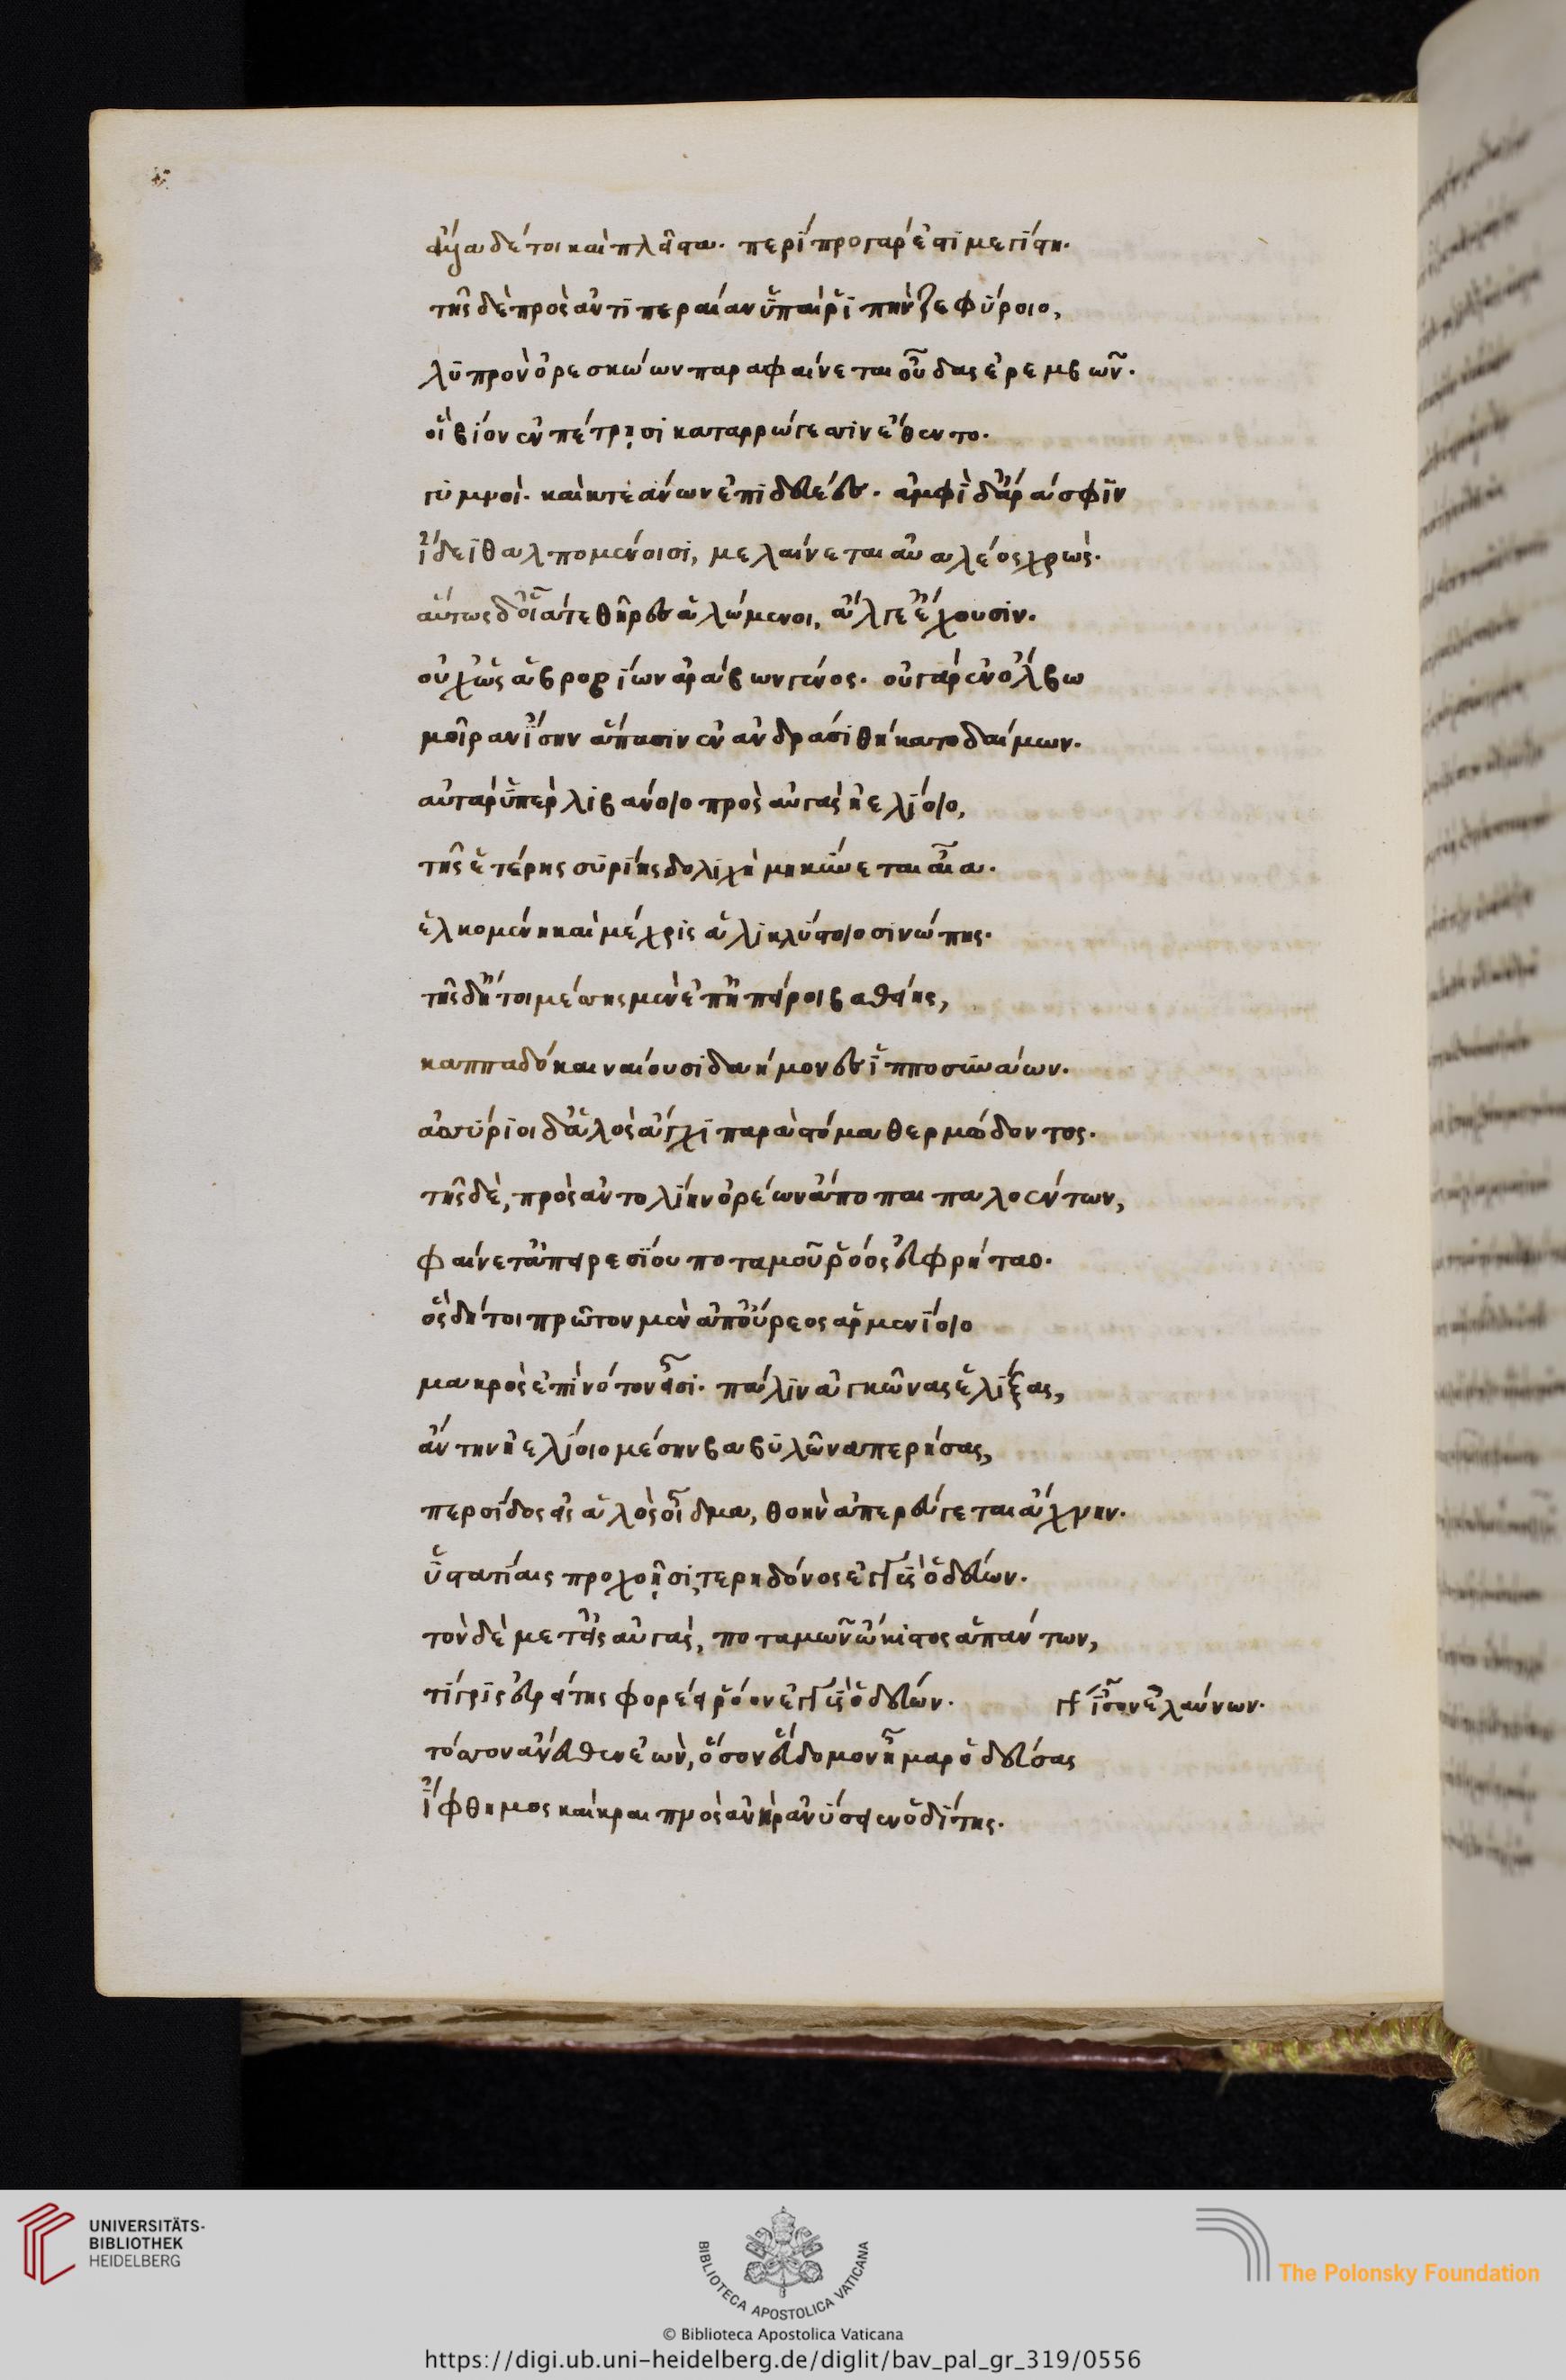 αἶα δέ τοι καὶ πλεῖστα. περὶ προ γάρ ἐστι μεγίστη.
τῆς δὲ πρὸς ἀντιπεραίαν ὑπαὶ ῥιπὴν ζεφύροιο,
λυπρὸν ὀρεσκώων παραφαίνεται οὖδας ἐρεμβῶν.
οἳ βίον ἐν πέτρῃσι καταρρώγεσσιν ἔθεντο.
γυμνοὶ. καὶ κτεάνων ἐπιδευέες. ἀμφὶ δ' ἄρά σφιν
ἴδεϊ θαλπομένοισι, μελαίνεται αὐαλέος χρὼς.
αὔτως δ' οἷά τε θῆρες ἀλώμενοι, ἄλγε' ἔχουσιν.
οὐχ' ὡς ἁβροβίων ἀράβων γένος. οὐ γὰρ ἐν ὄλβω
μοῖραν ἴσην ἅπασιν ἐν ἀνδράσι θήκατο δαίμων.
αὐτὰρ ὑπὲρ λιβάνοιο πρὸς αὐγὰς ἠελίοιο,
τῆς ἑτέρης συρίης δολιχὴ μηκύνεται αἶα.
ἑλκομένη καὶ μέχρις ἁλικλύστοιο σινώπης.
τῆς δ' ἤτοι μέσσης μὲν ἐπ' ἠπείροι βαθείης,
καππαδόκαι ναίουσι δαήμονες ἱπποσυνάων.
ἀσσύριοι δ' ἁλὸς ἄγχι παρὰ στόμα θερμώδοντος.
τῆς δὲ, πρὸς ἀντολίην ὀρέων ἄπο παιπαλοέντων,
φαίνετ' ἀπειρεσίου ποταμοῦ ῥόος εὐφρήταο.
ὃς δή τοι πρῶτον μὲν ἀπ' οὔρεος ἀρμενίοιο
μακρὸς ἐπὶ νότον εἶσι. πάλιν ἀγκῶνας ἑλίξας,
ἄντην ἠελίοιο μέσην βαβυλῶνα περήσας,
περσίδος εἰς ἁλὸς οἶδμα, θοὴν ἀπερεύγεται ἄχνην.
ὑστατίαις προχοῇσι τερηδόνος ἐγγὺς ὁδεύων.
τὸν δὲ μετ' εἰς αὐγὰς, ποταμῶν ὤκιστος ἁπάντων,
τίγρις εὐρείτης φορέει ῥόον ἐγγὺς ὁδεύων. γρ ἶσον ἐλαύνων.
τόσσον ἄνευθεν ἐὼν, ὅσον ἕβδομον ἦμαρ ὁδεύσας
ἴφθημος καὶ κραιπνὸς ἀνὴρ ἀνύσειεν ὁδίτης.
UNIVERSITÄTS-
BIBLIOTHEK
HEIDELBERG
BIBLIOTECA APOSTOLICA VATICANA
The Polonsky Foundation
© Biblioteca Apostolica Vaticana
https://digi.ub.uni-heidelberg.de/diglit/bav_pal_gr_319/0556